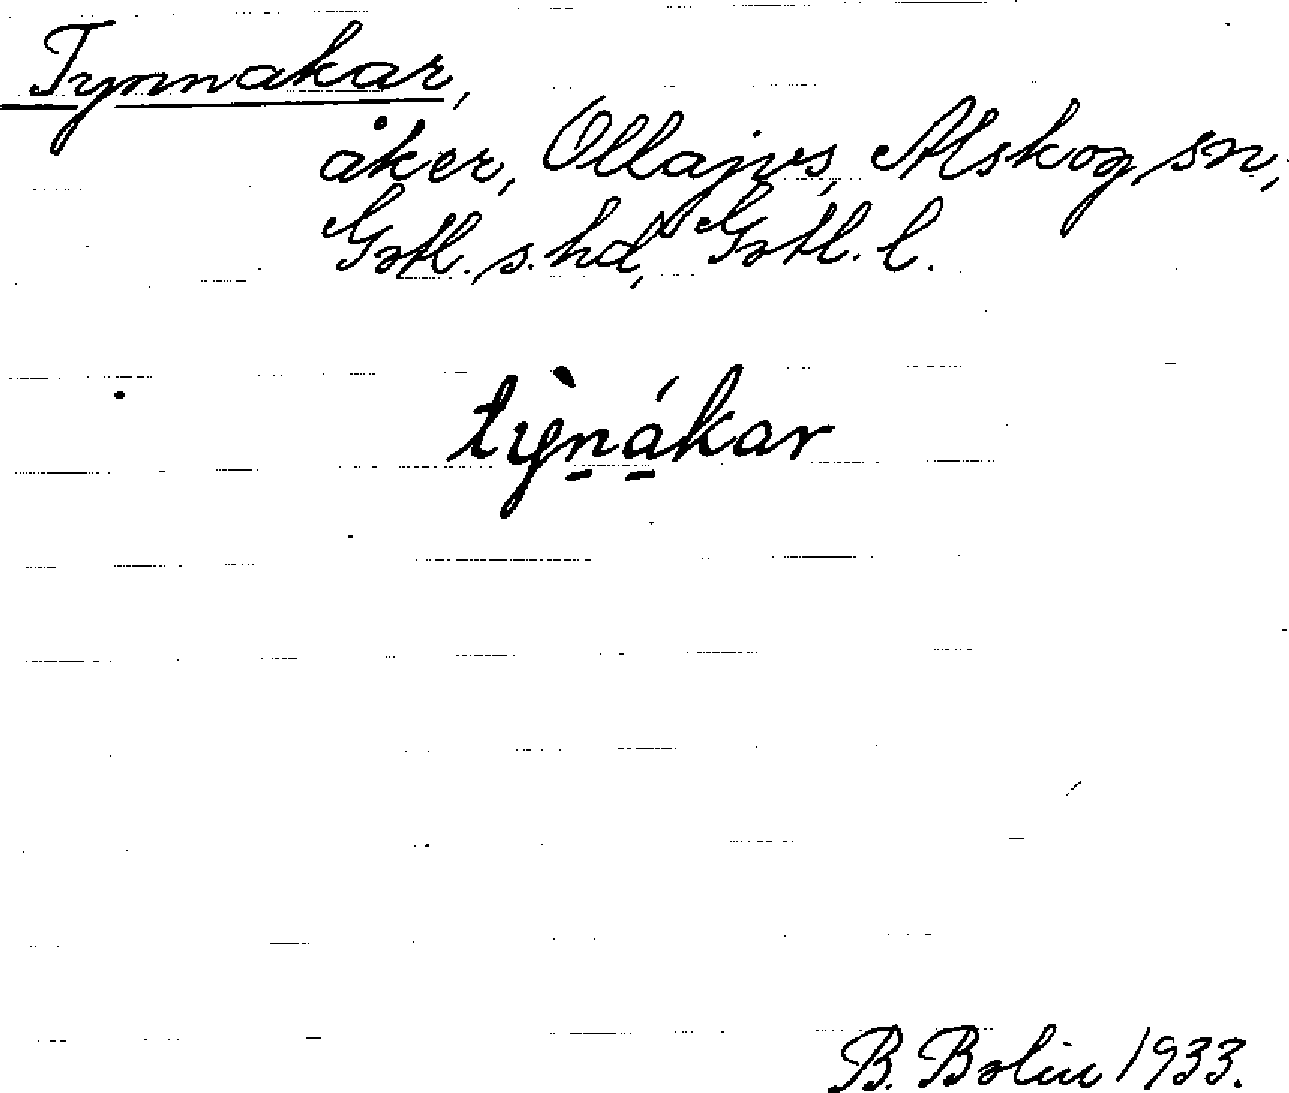 Tynnakar,
åker, Ollajvs, Alskog sn,
Gotl. s. hd, Gotl. l.
tỳn̠á̠kar
B. Bolin 1933.